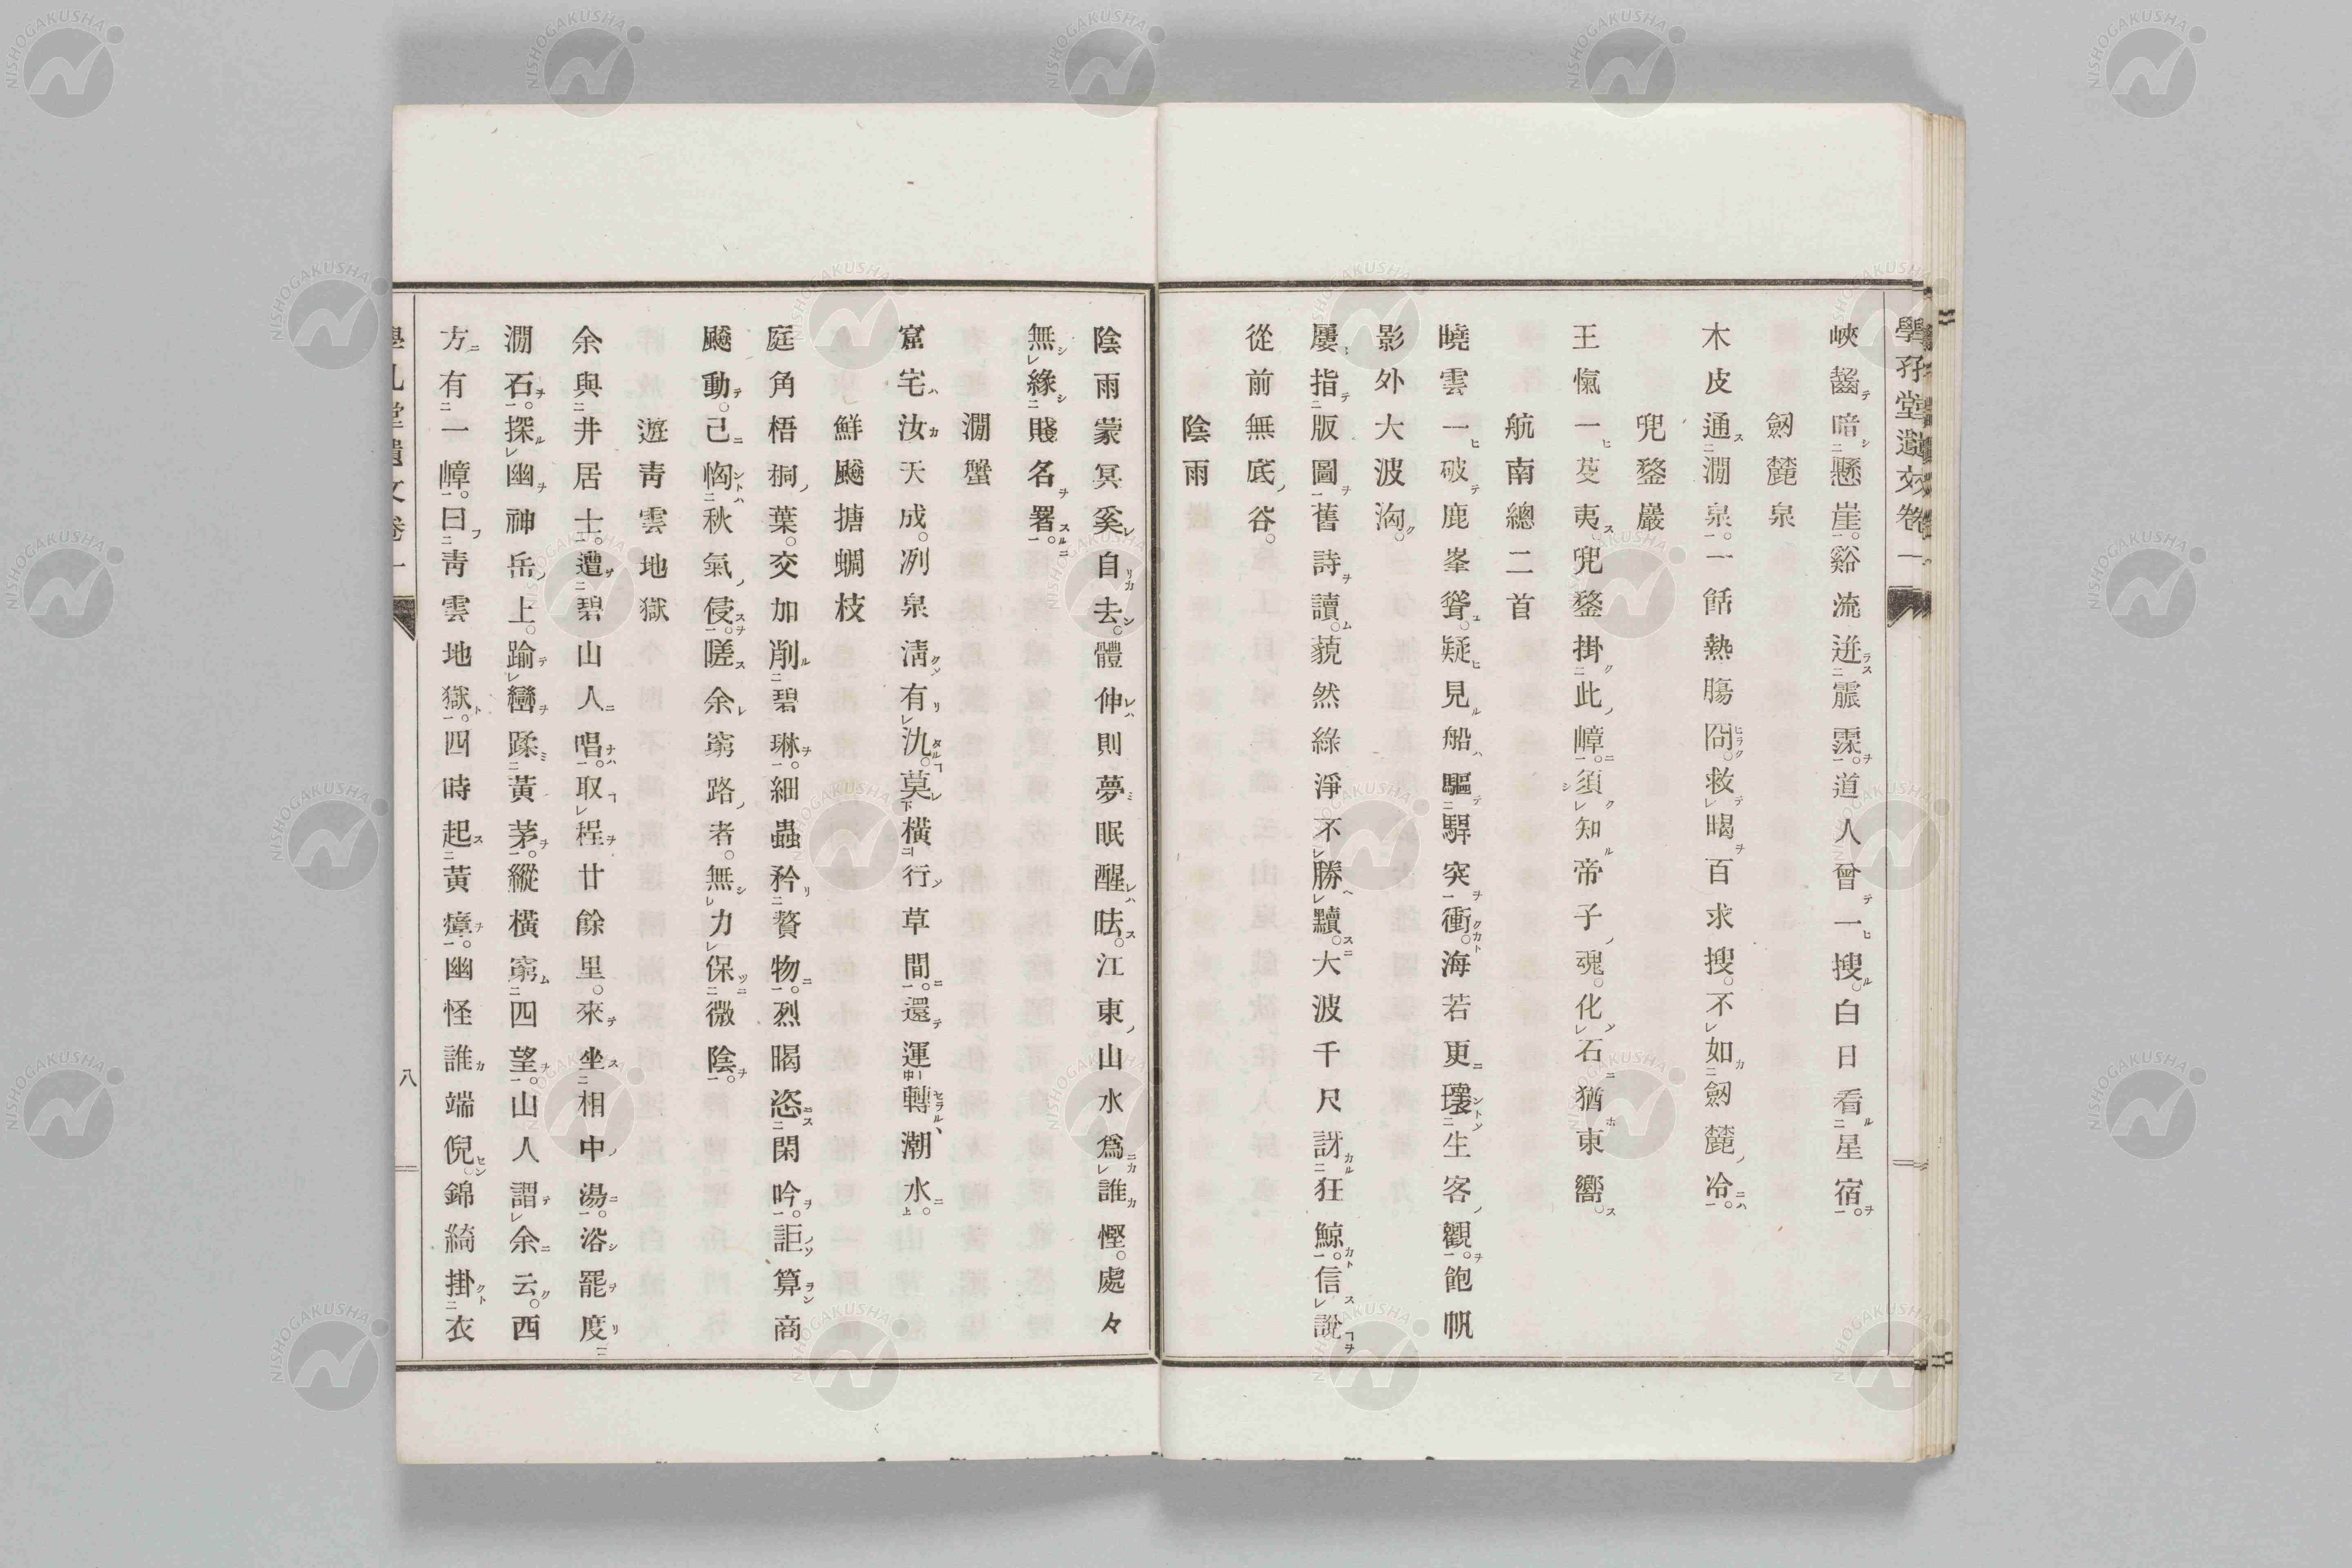 學孖堂遺文卷一
峽齧暗懸崖。谿流迸霢霂。道人曾一搜。白日看星宿。
劔麓泉
木皮通澗泉。一餂熱腸冏。救暍百求搜。不如劔麓冷。
兜鍪巖
王愾一芟夷。兜鍪掛此嶂。須知帝子魂。化石猶東嚮。
航南總二首
曉雲一破鹿峯聳。疑見船驅驛突衝。海若更瓌生客觀。飽帆
影外大波洶。
屢指版圖舊詩讀。藐然綠淨不勝黷。大波千尺訝狂鯨。信說
從前無底谷。
陰雨
陰雨蒙冥奚自去。體伸則夢眠醒呿。江東山水爲誰慳。處々
無緣賤名署。
澗蟹
窟宅汝天成。冽泉淸有氿。莫橫行草間。還運轉潮水。
鮮颷搪蜩枝
庭角梧桐葉。交加削碧琳。細蟲矜贅物。烈暍恣閑吟。詎算商
颷動。己恟秋氣侵。嗟余窮路者。無力保微陰。
遊靑雲地獄
余與井居士。遭碧山人唱。取程廿餘里。來坐相中湯。浴罷度
澗石。探幽神岳上。踰巒蹂黃茅。縱橫窮四望。山人謂余云。西
方有一嶂。曰靑雲地獄。四時起黃瘴。幽怪誰端倪。錦綺掛衣
八